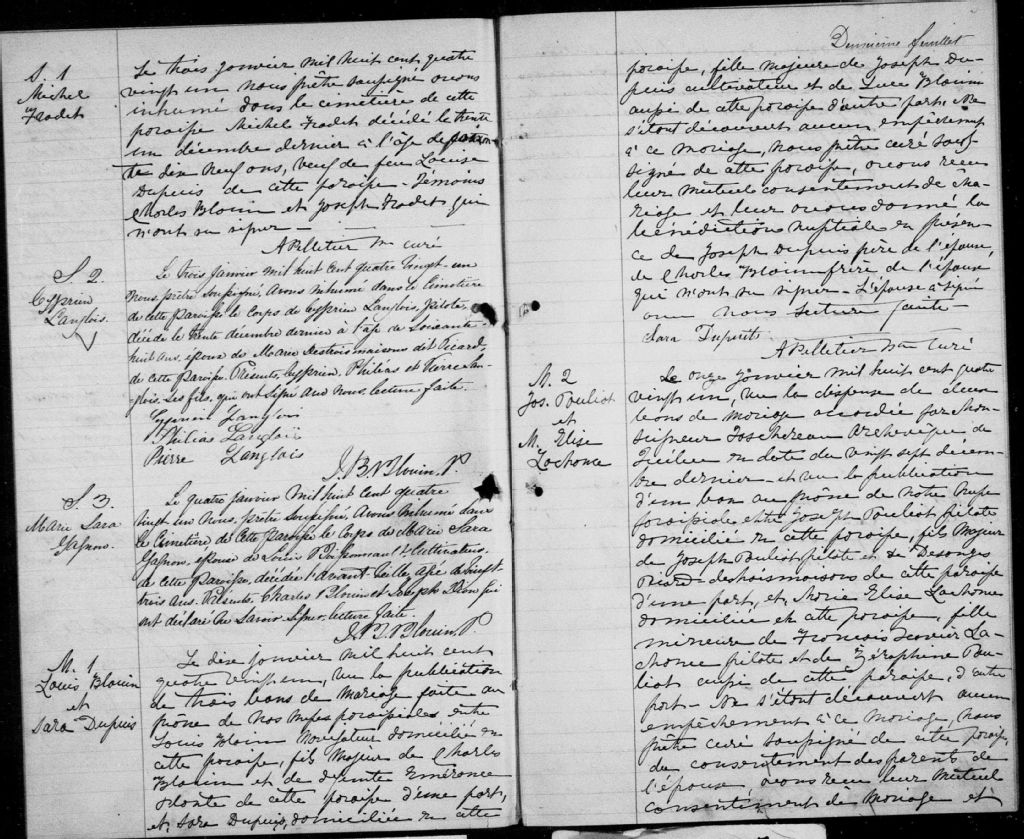 S. 1
Michel
Fradet
Le trois janvier mil huit cent quatre
vingt un nous prêtre soussigné avons
inhumé dans le cemetière de cette
paroisse Michel Fradet décédé le trente
un décembre dernier à l'âge de
dix neuf ans, veuf de feue Louise
Dupuis de cette paroisse - Témoins
Charles Blouin et Joseph Fradet qui
n'ont su signer -
A Pelletier Ptre curé
S. 2.
Cyprien
Langlois.
Le trois Janvier mil huit cent quatre vingt-un
Nous, prêtre soussigné, avons inhumé dans le Cemetière
de cette Paroisse le corps de Cyprien Langlois, pilote,
décédé le trente décembre dernier à l'age de Soixante
huit ans, époux de Marie Destroismaisons dit Picard
de cette Paroisse. Présents, Cyprien, Philéas et Pierre Lan-
glois, ses fils, qui ont signé avec Nous, lecture faite.
Cyprien Langlois
Philias Langlois
Pierre Langlois
J. B. N. Blouin, P.
S. 3.
Marie Sara
Gagnon.
Le quatre janvier mil huit cent quatre
vingt un Nous, prêtre soussigné, avons inhumé dans
le Cemetière de Cette Paroisse le corps de Marie Sara
Gagnon, épouse de Louis Cultivateur,
de cette Paroisse, décédée l'avant veille, agée de vingt
trois ans. Présents, Charles Blouin et Joseph Dion qui
ont déclaré ne savoir signer, lecture faite.
J. B. N. Blouin, P.
M. 1
Louis Blouin
et
Sara Dupuis
Le dix janvier mil huit cent
quatre vingt un, vu la publication
de trois bans de mariage faite au
prône de nos messes paroissiales entre
Louis Blouin Navigateur domicilié en
cette paroisse, fils majeur de Charles
Blouin et de défunte Emérence
Plante de cette paroisse d'une part,
et Sara Dupuis, domiciliée en cette
Deuxième feuillet
paroisse, fille majeure de Joseph Du-
puis cultivateur et de Luce Blouin
aussi de cette paroisse d'autre part; Ne
s'étant découvert aucun empêchement
à ce mariage, nous prêtre curé sous-
signé de cette paroisse, avons reçu
leur mutuel consentement de ma-
riage et leur avons donné la
bénédiction nuptiale en présen-
ce de Joseph Dupuis père de l'épouse,
de Charles Blouin frère de l'époux
qui n'ont su signer - L'épouse a signé
avec nous lecture faite
Sara Dupuis.
A Pelletier Ptre Curé
M. 2
Jos. Pouliot
et
M. Elise
Lachance
Le onze janvier mil huit cent quatre
vingt un, vu la dispense de deux
bans de mariage accordée par Mon-
seigneur Taschereau Archevêque de
Québec en date du vingt sept décem-
bre dernier - et vu la publication
d'un ban au prone de notre messe
paroissiale entre Joseph Pouliot pilote
domicilié en cette paroisse, fils majeur
de Joseph Pouliot pilote et de Desanges
Picard-Destroismaisons de cette paroisse
d'une part, et Marie Elise Lachance
domiciliée en cette paroisse, fille
mineure de Francois Xavier La-
chance pilote et de Zéraphine Pou-
liot aussi de cette paroisse, d'autre
part - Ne s'étant découvert aucun
empêchement à ce mariage, nous
prêtre curé soussigné de cette paroisse,
du consentement des parents de
l'épouse, avons reçu leur mutuel
consentement de mariage et